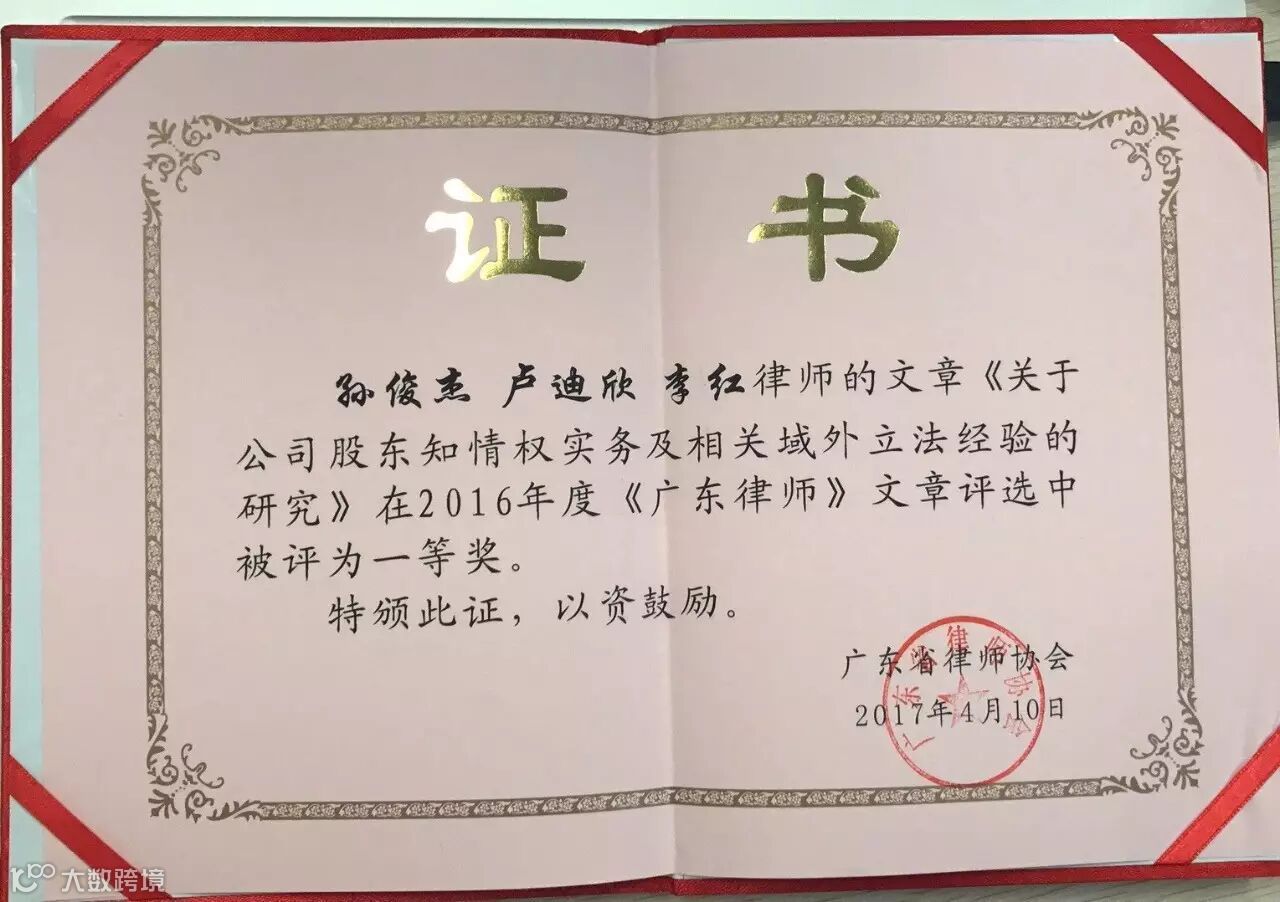 证书
孙俊杰 卢迪欣 李红律师的文章《关于
公司股东知情权实务及相关域外立法经验的
研究》在2016年度《广东律师》文章评选中
被评为一等奖。
特颁此证，以资鼓励。
广东省律师协会
2017年4月10日
广东省律师协会
大数跨境